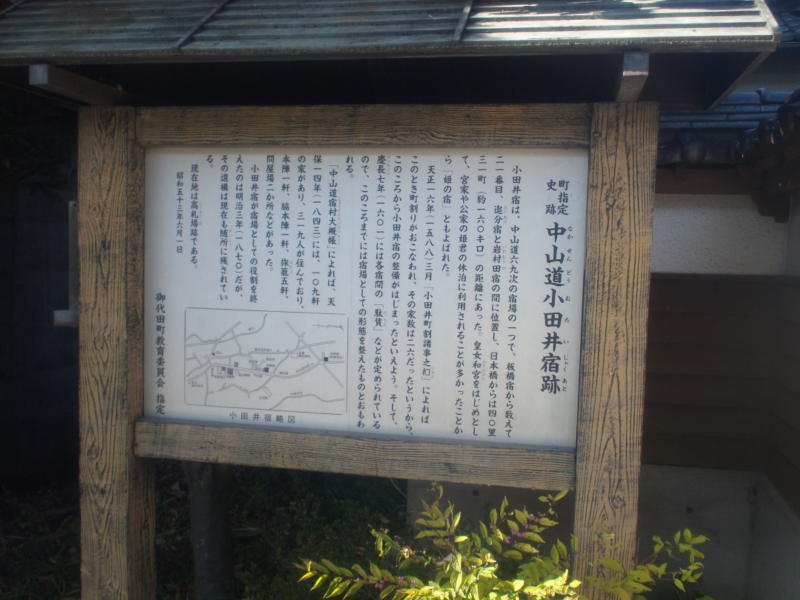 町指定
史跡
中山道小田井宿跡
なかせんどうおたいじゅくあと
小田井宿は、中山道六九次の宿場の一つで、板橋宿から数えて
二一番目、追分宿と岩村田宿の間に位置し、日本橋からは四〇里
三一町(約一六〇キロ)の距離にあった。皇女和宮をはじめとし
て、宮家や公家の姫君の休泊に利用されることが多かったことか
ら「姫の宿」ともよばれた。
天正一六年(一五八八)三月「小田井町割諸事之扣」によれば
このとき町割りがおこなわれ、その家数は二六だったというから、
このころから小田井宿の整備がはじまったといえよう。そして、
慶長七年(一六〇二)には各宿間の「駄賃」などが定められている
ので、このころまでには宿場としての形態を整えたものとおもわ
れる。
「中山道宿村大概帳」によれば、天
保一四年(一八四三)には、一〇九軒
の家があり、三一九人が住んでおり、
本陣一軒、脇本陣一軒、旅籠五軒、
問屋場二か所などがあった。
小田井宿が宿場としての役割を終
えたのは明治三年(一八七〇)だが、
その遺構は現在も随所に残されてい
る。
現在地は高札場跡である。
昭和五十三年六月一日
御代田町教育委員会 指定
小田井宿略図